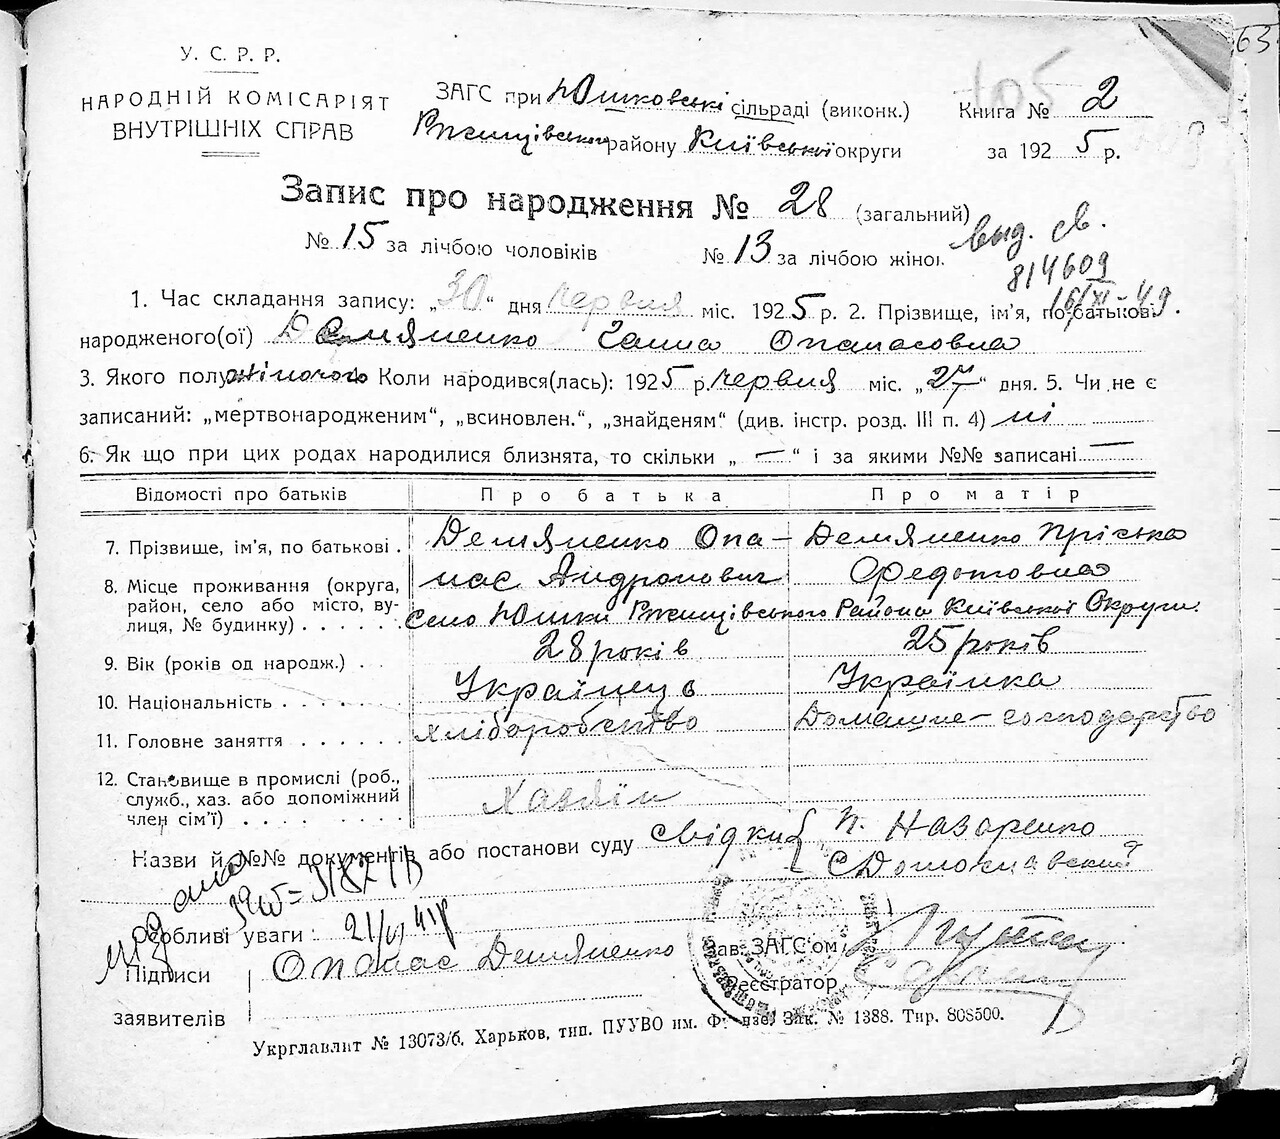 63
У. С. Р. Р.
НАРОДНІЙ КОМІСАРІЯТ
ВНУТРІШНІХ СПРАВ
105
ЗАГС при Юшковські сільраді (виконк.)
Ржищівського району Київської округи
Книга № 2
за 1925 р.
Запис про народження № 28 (загальний)
№ 15 за лічбою чоловіків № 13 за лічбою жінок
выд. св.
814609
16/XI-49.
1. Час складання запису: „30“ дня червня міс. 1925 р. 2. Прізвище, ім'я, по батькові
народженого(ої) Демяненко Ганна Опанасовна
3. Якого полу жіночого Коли народився(лась): 1925 р. червня міс. „27“ дня. 5. Чи не є
записаний: „мертвонародженим“, „всиновлен.“, „знайденям“ (див. інстр. розд. III п. 4) ні
6. Як що при цих родах народилися близнята, то скільки „ — “ і за якими №№ записані —
Відомості про батьків Про батька Про матір
7. Прізвище, ім'я, по батькові . Демяненко Опа- Демяненко Пріська
нас Андронович Федотовна
8. Місце проживання (округа,
район, село або місто, ву-
лиця, № будинку) . . . . . Село Юшки Ржищівського Района Київської Округи.
9. Вік (років од народж.) . . 28 років 25 років
10. Національність . . . . . . Українець Українка
11. Головне заняття . . . . . . хліборобство Домашне-господарство
12. Становище в промислі (роб.,
служб., хаз. або допоміжний
член сім'ї) . . . . . . . . Хазяїн
Назви й №№ документів або постанови суду свідки { П. Назаренко
Особливі уваги :
21/VI 41р
Підписи Опанас Демяненко
заявителів
Зав. ЗАГС'ом
Реєстратор
Укрглавлит № 13073/б. Харьков, тип. ПУУВО им. Фрунзе. Зак. № 1388. Тир. 808500.